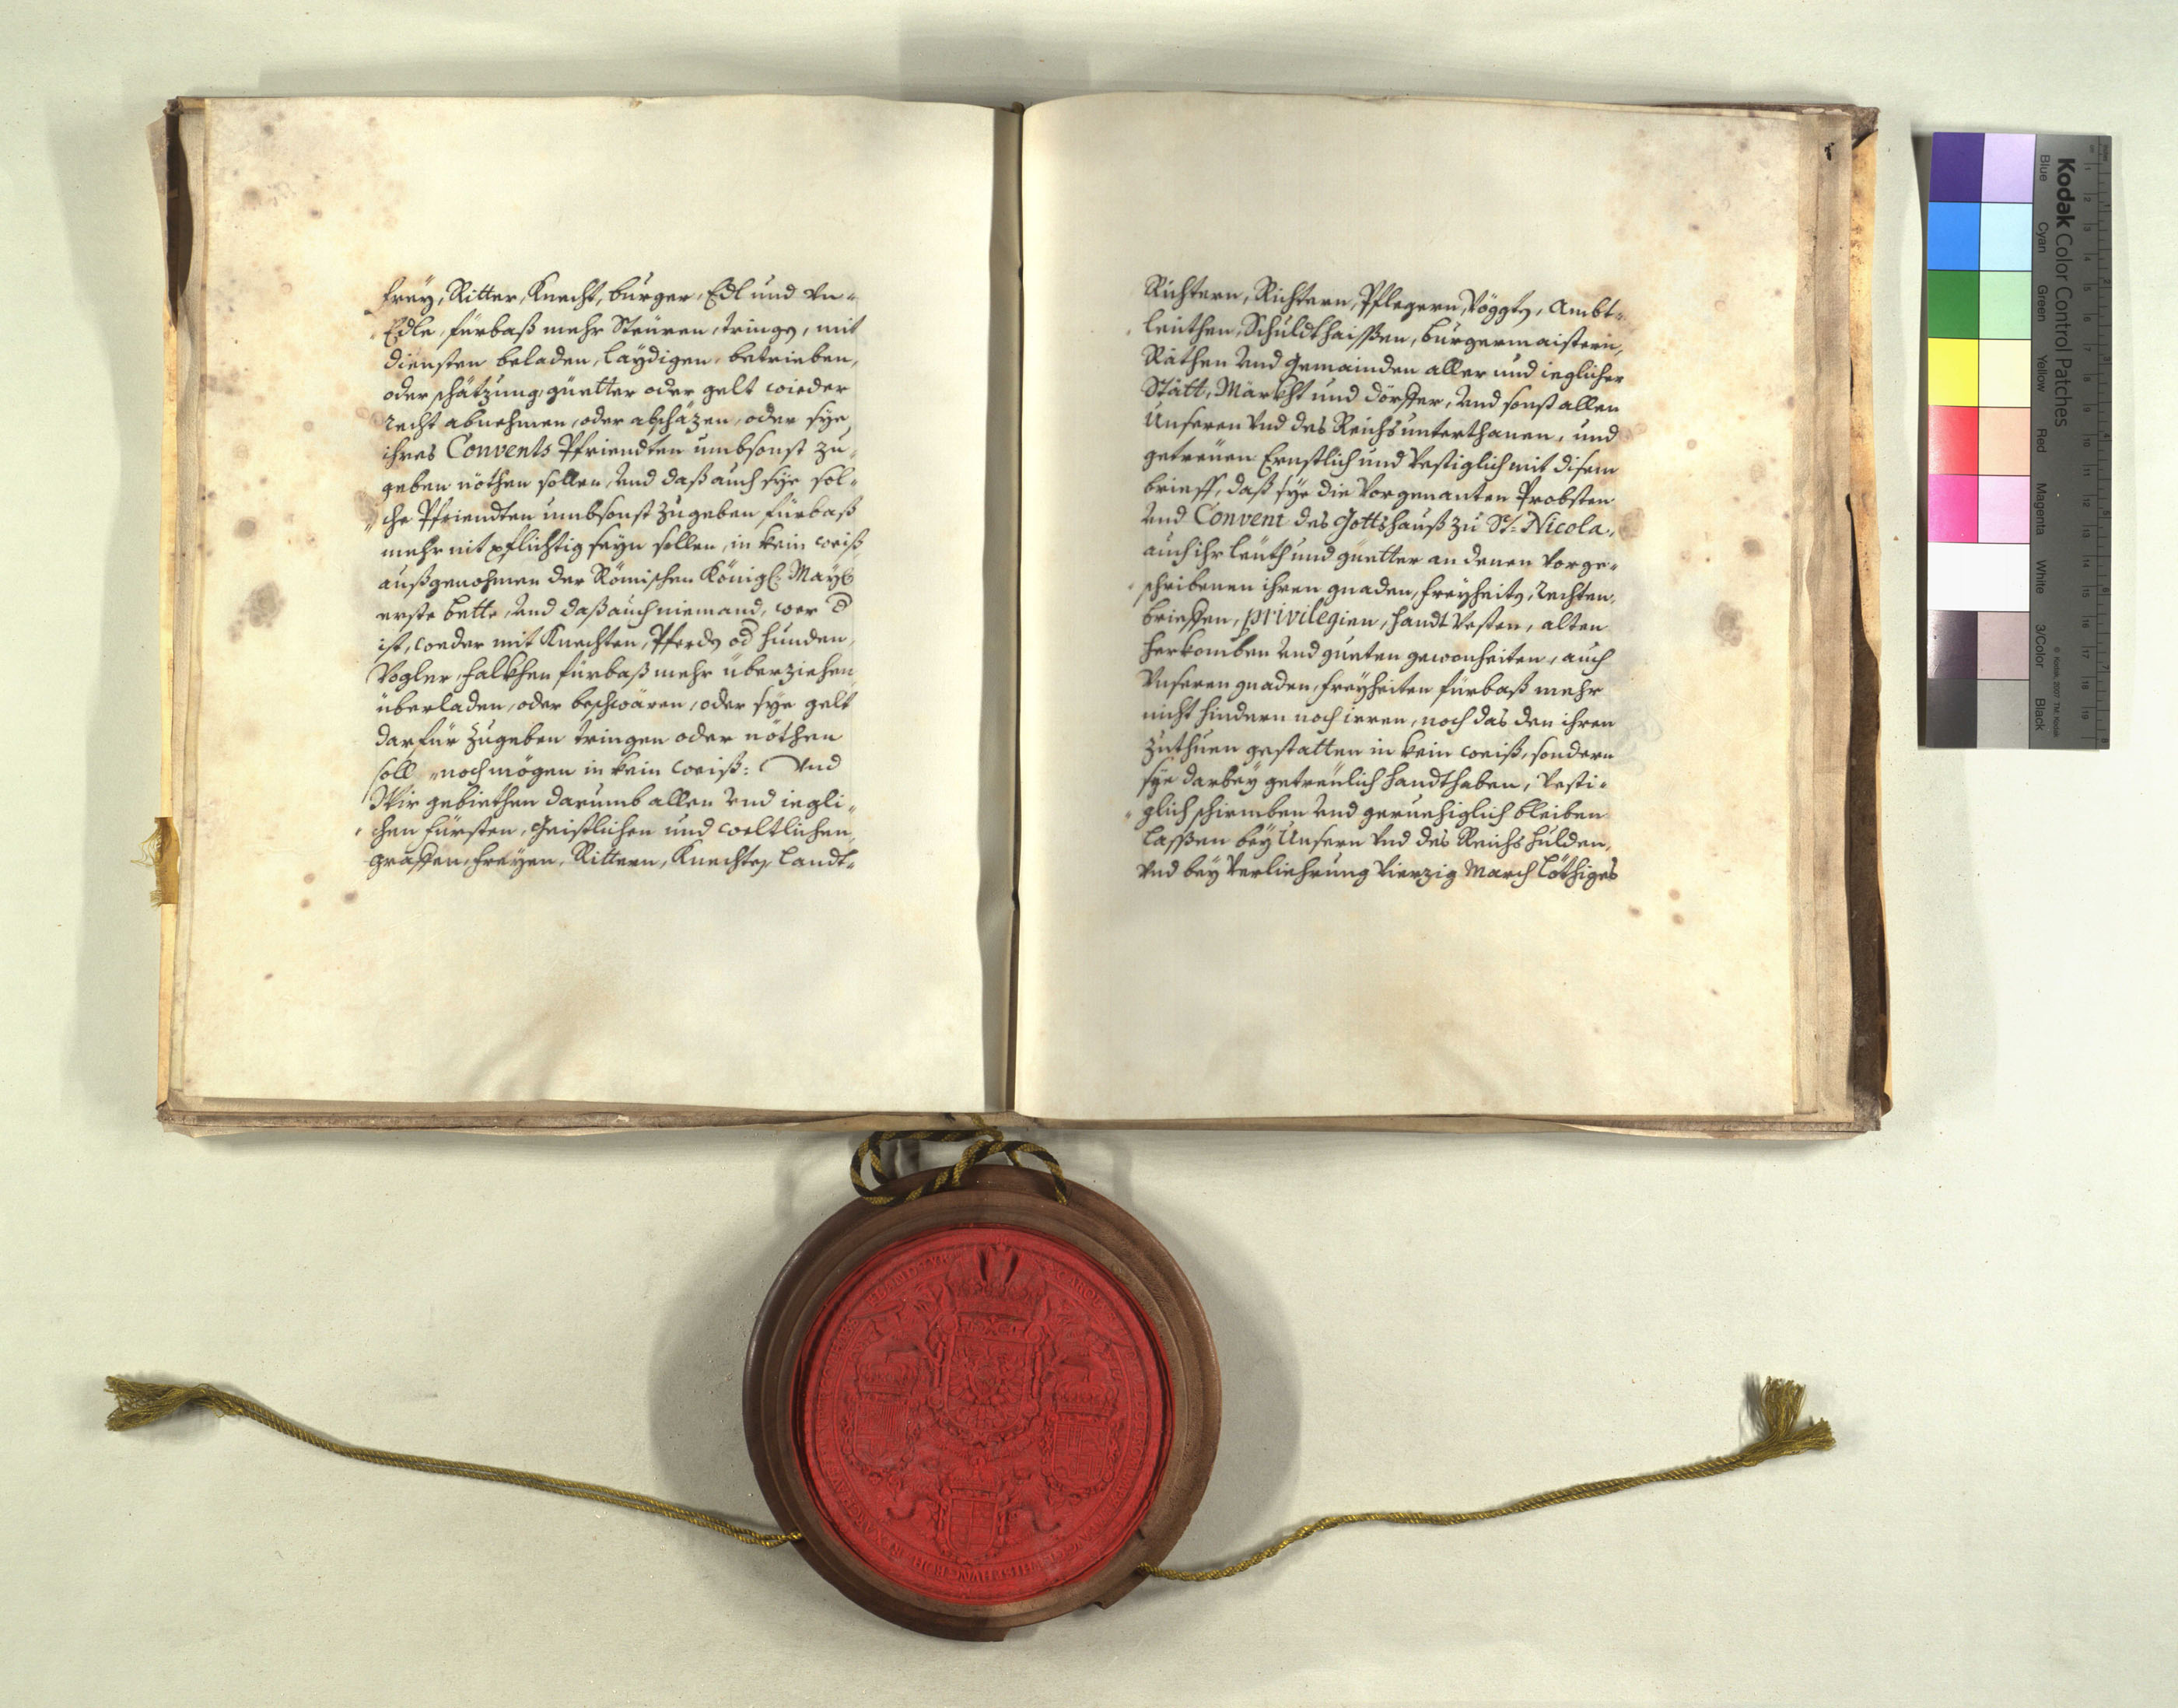 freÿ, Ritter, Knecht, burger, Edl und Vn-
Edle, fürbaß mehr Steüren, tringen, mit
diensten beladen, laÿdigen, betrieben,
oder schätzung, güetter oder gelt wieder
recht abnehmen, oder abschäzen, oder sÿe,
ihres Convents Pfriendten umbsonst zu-
geben nöthen sollen, Vnd daß auch sÿe sol-
che Pfriendten umbsonst zugeben fürbaß
mehr nit pflichtig seyn sollen, in kein weiß
außgenohmen der Römischen Königl: Maÿl
erste bette, Vnd daß auch niemand, wer d
ist, weder mit Knechten, Pferdn od hunden,
Vogler, falkhen fürbaß mehr überziehen
überladen, oder beschwären, oder sÿe gelt
darfür zugeben tringen oder nöthen
soll, noch mögen in kein weiß: Vnd
Wir gebiethen darumb allen Vnd iegli-
chen fürsten, Geistlichen und weltlichen,
graffen, freÿen, Rittern, Knechten, Landt-
Richtern, Richtern, Pflegern, Vöggtn, Ambt-
leüthen, Schuldthaissen, burgermaistern,
Räthen Vnd Gemainden aller und ieglicher
Stätt, Märkht und dörffer, Vnd sonst allen
Unseren Vnd des Reichs unterthanen, und
getreüen Ernstlich und Vestiglich mit disem
brieff, daß sÿe die Vorgenanten Probsten
Vnd Convent des Gottshauß zu St: Nicola,
auch ihr leüth und güetter an denen Vorge-
schribenen ihren gnaden, freÿheitn, rechten,
brieffen, privilegien, handt Vesten, alten
herkomben Vnd gueten gewonheiten, auch
Vnseren gnaden, freÿheiten fürbaß mehr
nicht hindern noch irren, noch das den ihren
Zuthuen gestatten in kein weiß, sondern
sÿe darbeÿ getreülich handthaben, Vesti-
glich schirmben Vnd geruehiglich bleiben
lassen beÿ Unsern Vnd des Reichs hulden,
Vnd beÿ Verliehrung Vierzig March löthiges
Kodak Color Control Patches
Blue Cyan Green Yellow Red Magenta White 3/Color Black
© Kodak, 2007 TM: Kodak